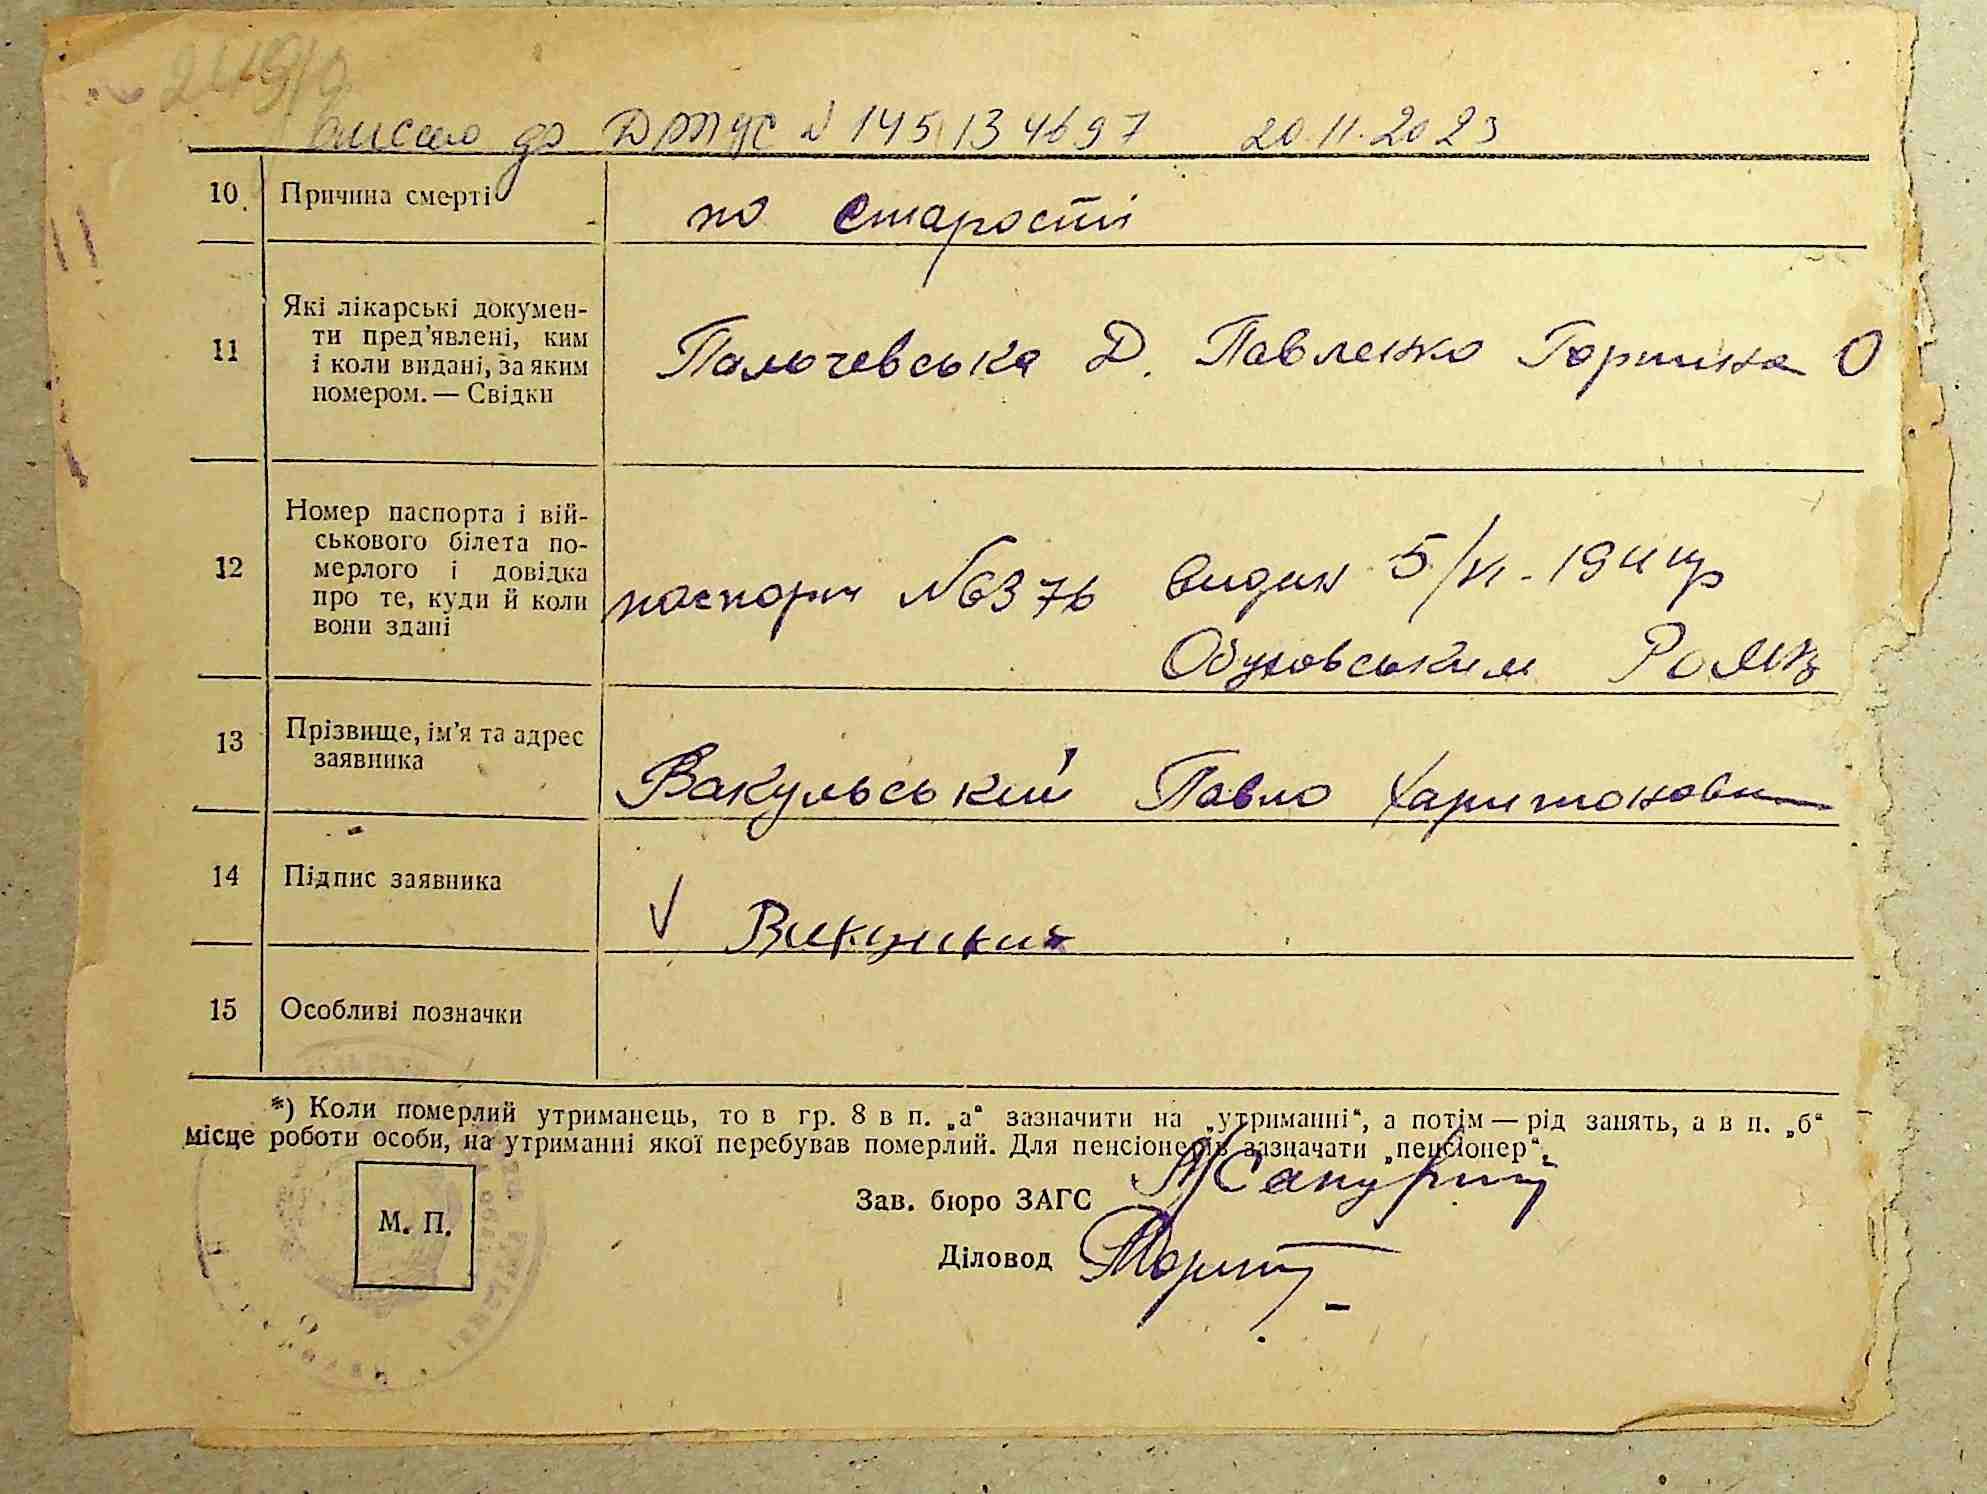 внесено до ДРАЦС N 145134697 20.11.2023
10. Причина смерті
по старості
11 Які лікарські докумен-
ти пред'явлені, ким
і коли видані, за яким
номером. — Свідки
Палючевська Д. Павленко Горпина О
12 Номер паспорта і вій-
ськового білета по-
мерлого і довідка
про те, куди й коли
вони здані
паспорт №6376 видан 5/VI - 1941 р
Обуховським РОМВ
13 Прізвище, ім'я та адрес
заявника
Вакульський Павло Харитонови
14 Підпис заявника
V
15 Особливі позначки
*) Коли померлий утриманець, то в гр. 8 в п. „а“ зазначити на „утриманні“, а потім — рід занять, а в п. „б“
місце роботи особи, на утриманні якої перебував померлий. Для пенсіонерів зазначати „пенсіонер“.
Зав. бюро ЗАГС
М. П.
Діловод